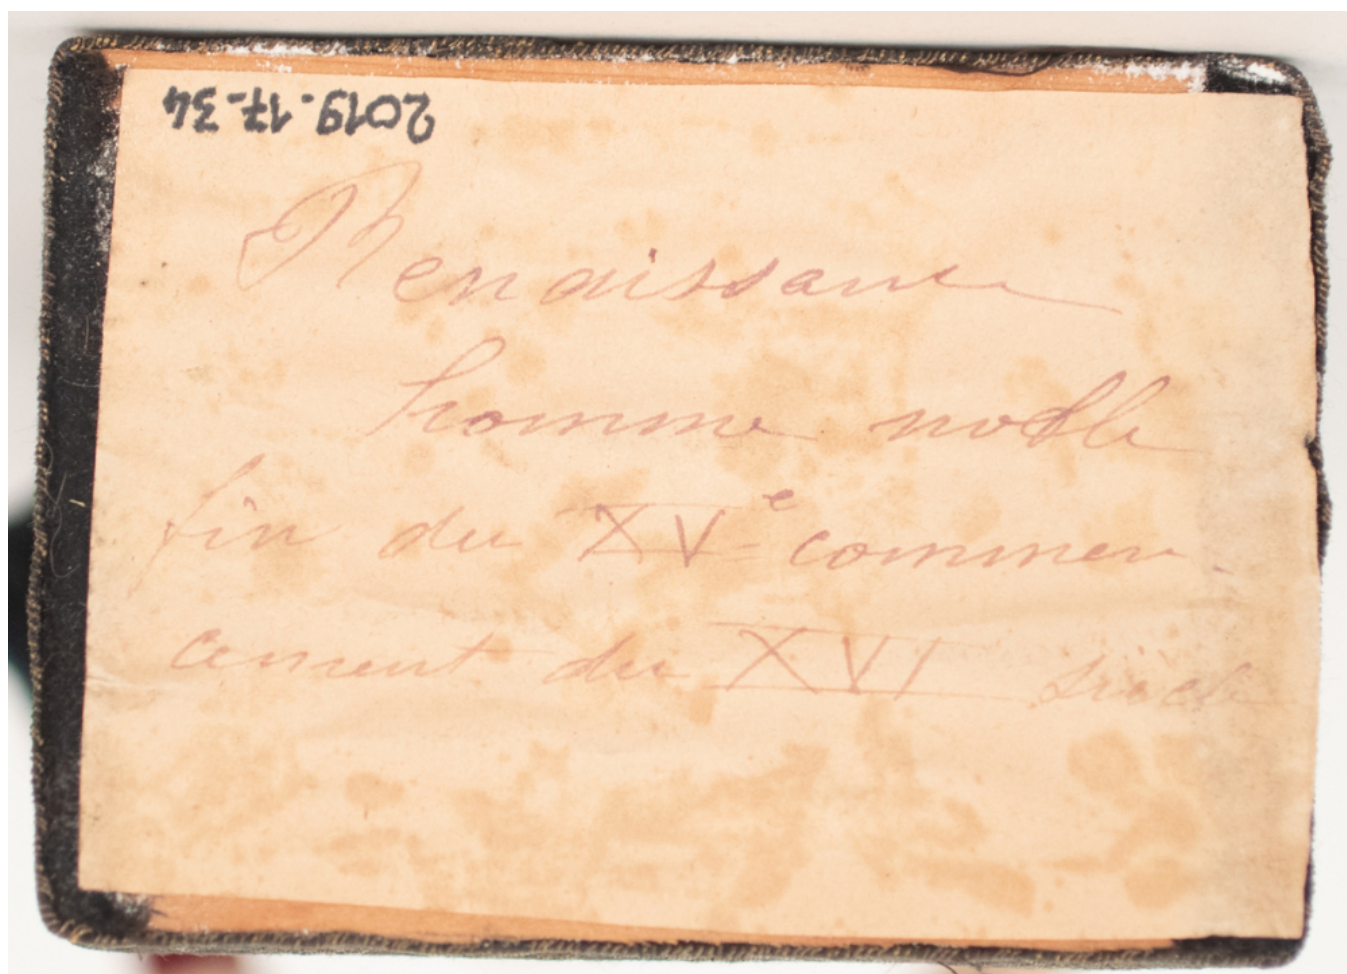 2019.17.34
Renaissance
homme noble
fin du XVe commen
cement du XVI siècle